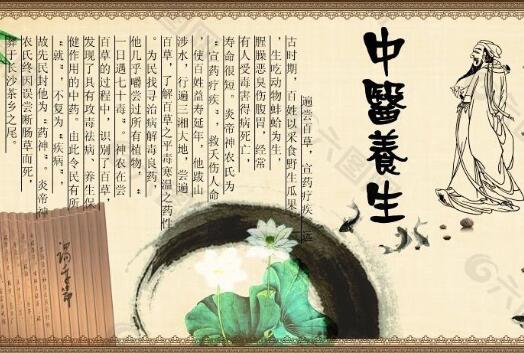 中醫養生
遍尝百草，宣药疗疾
古时期，百姓以采食野生瓜果
，生吃动物蚌蛤为生，
腥臊恶臭伤腹胃，经常
有人受毒害得病死亡，
寿命很短。炎帝神农氏为
“宣药疗疾”，救夭伤人命
，使百姓益寿延年，他跋山
涉水，行遍三湘大地，尝遍
百草，了解百草之平毒寒温之药性
。为民找寻治病解毒良药，
他几乎嚼尝过所有植物，“
一日遇七十毒”。神农在尝
百草的过程中，识别了百草，
发现了具有攻毒祛病、养生保
健作用的中药。由此令民有所
“就”，不复为“疾病”，
故先民封他为“药神”。炎帝神
农氏终因误尝断肠草而死，
葬于长沙茶乡之尾。